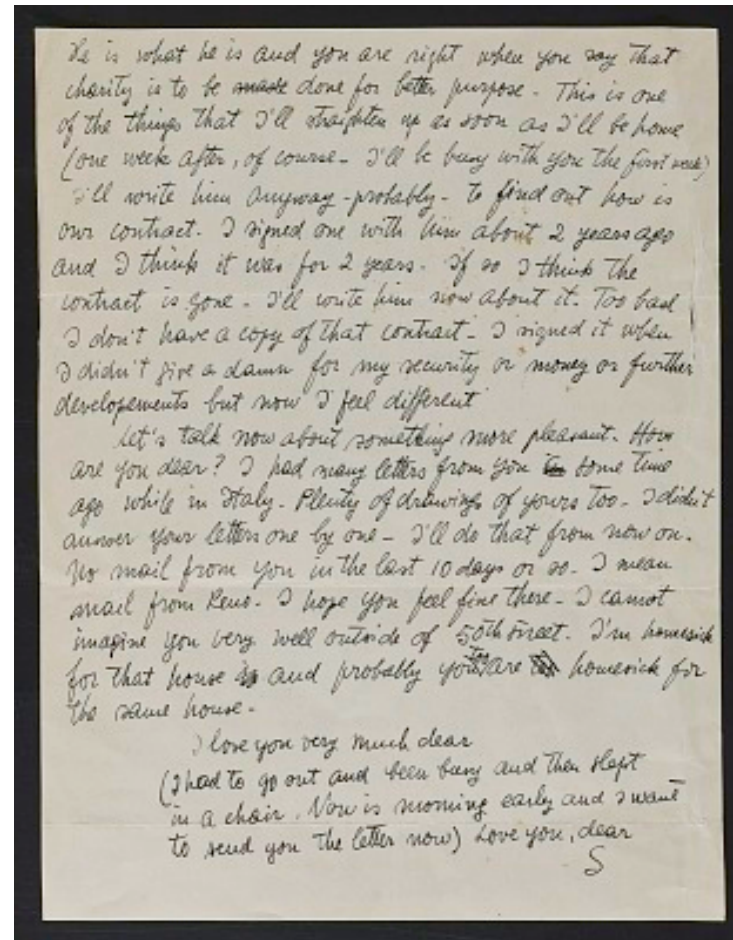 He is what he is and you are right when you say that
charity is to be made done for better purpose - This is one
of the things that I'll straighten up as soon as I'll be home
(one week after, of course - I'll be busy with you the first week)
I'll write him anyway - probably - to find out how is
our contract. I signed one with him about 2 years ago
and I think it was for 2 years. If so I think the
contract is gone - I'll write him now about it. Too bad
I don't have a copy of that contract - I signed it when
I didn't give a damn for my security or money or further
developements but now I feel different
Let's talk now about something more pleasant. How
are you dear? I had many letters from you some time
ago while in Italy. Plenty of drawings of yours too - I didn't
answer your letters one by one - I'll do that from now on.
No mail from you in the last 10 days or so - I mean
mail from Reno. I hope you feel fine there - I cannot
imagine you very well outside of 50th street. I'm homesick
for that house and probably you too are homesick for
the same house -
I love you very much dear
(I had to go out and been busy and then slept
in a chair. Now is morning early and I want
to send you the letter now) Love you, dear
S